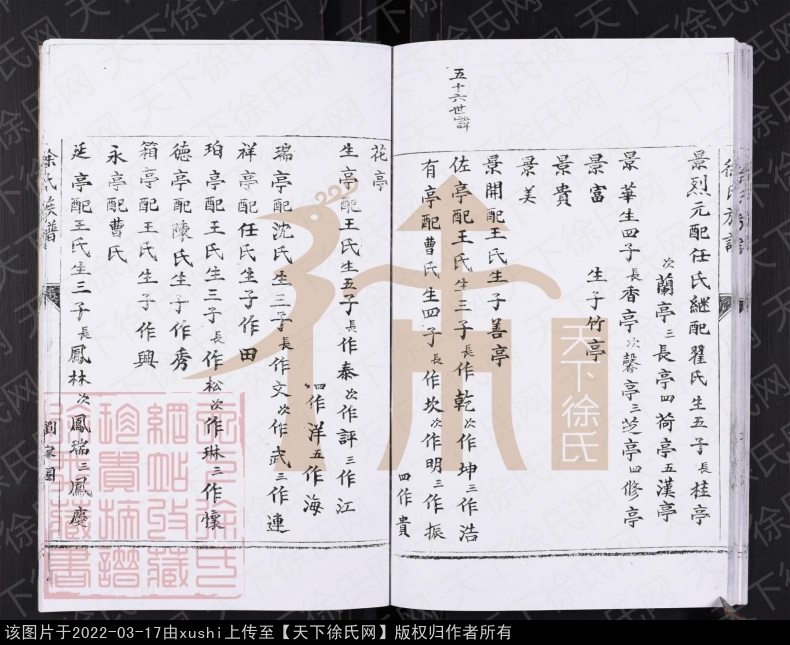 徐氏族譜
景烈元配任氏継配翟氏生五子長桂亭
次蘭亭三長亭四荷亭五漢亭
景華生四子長香亭次馨亭三芝亭四修亭
景富 生子竹亭
景貴
景美
景開配王氏生子善亭
佐亭配王氏生三子長作乾次作坤三作浩
有亭配曹氏生四子長作坎次作明三作振
四作貴
五十六世譜
花亭
生亭配王氏生五子長作泰次作評三作江
四作洋五作海
瑞亭配沈氏生三子長作文次作武三作連
祥亭配任氏生子作田
珀亭配王氏生三子長作松次作琳三作懷
德亭配陳氏生子作秀
箱亭配王氏生子作興
永亭配曹氏
延亭配王氏生三子長鳳林次鳳瑞三鳳慶
徐氏族譜
劉家園
天下徐氏
天下徐氏网
该图片于2022-03-17由xushi上传至【天下徐氏网】版权归作者所有